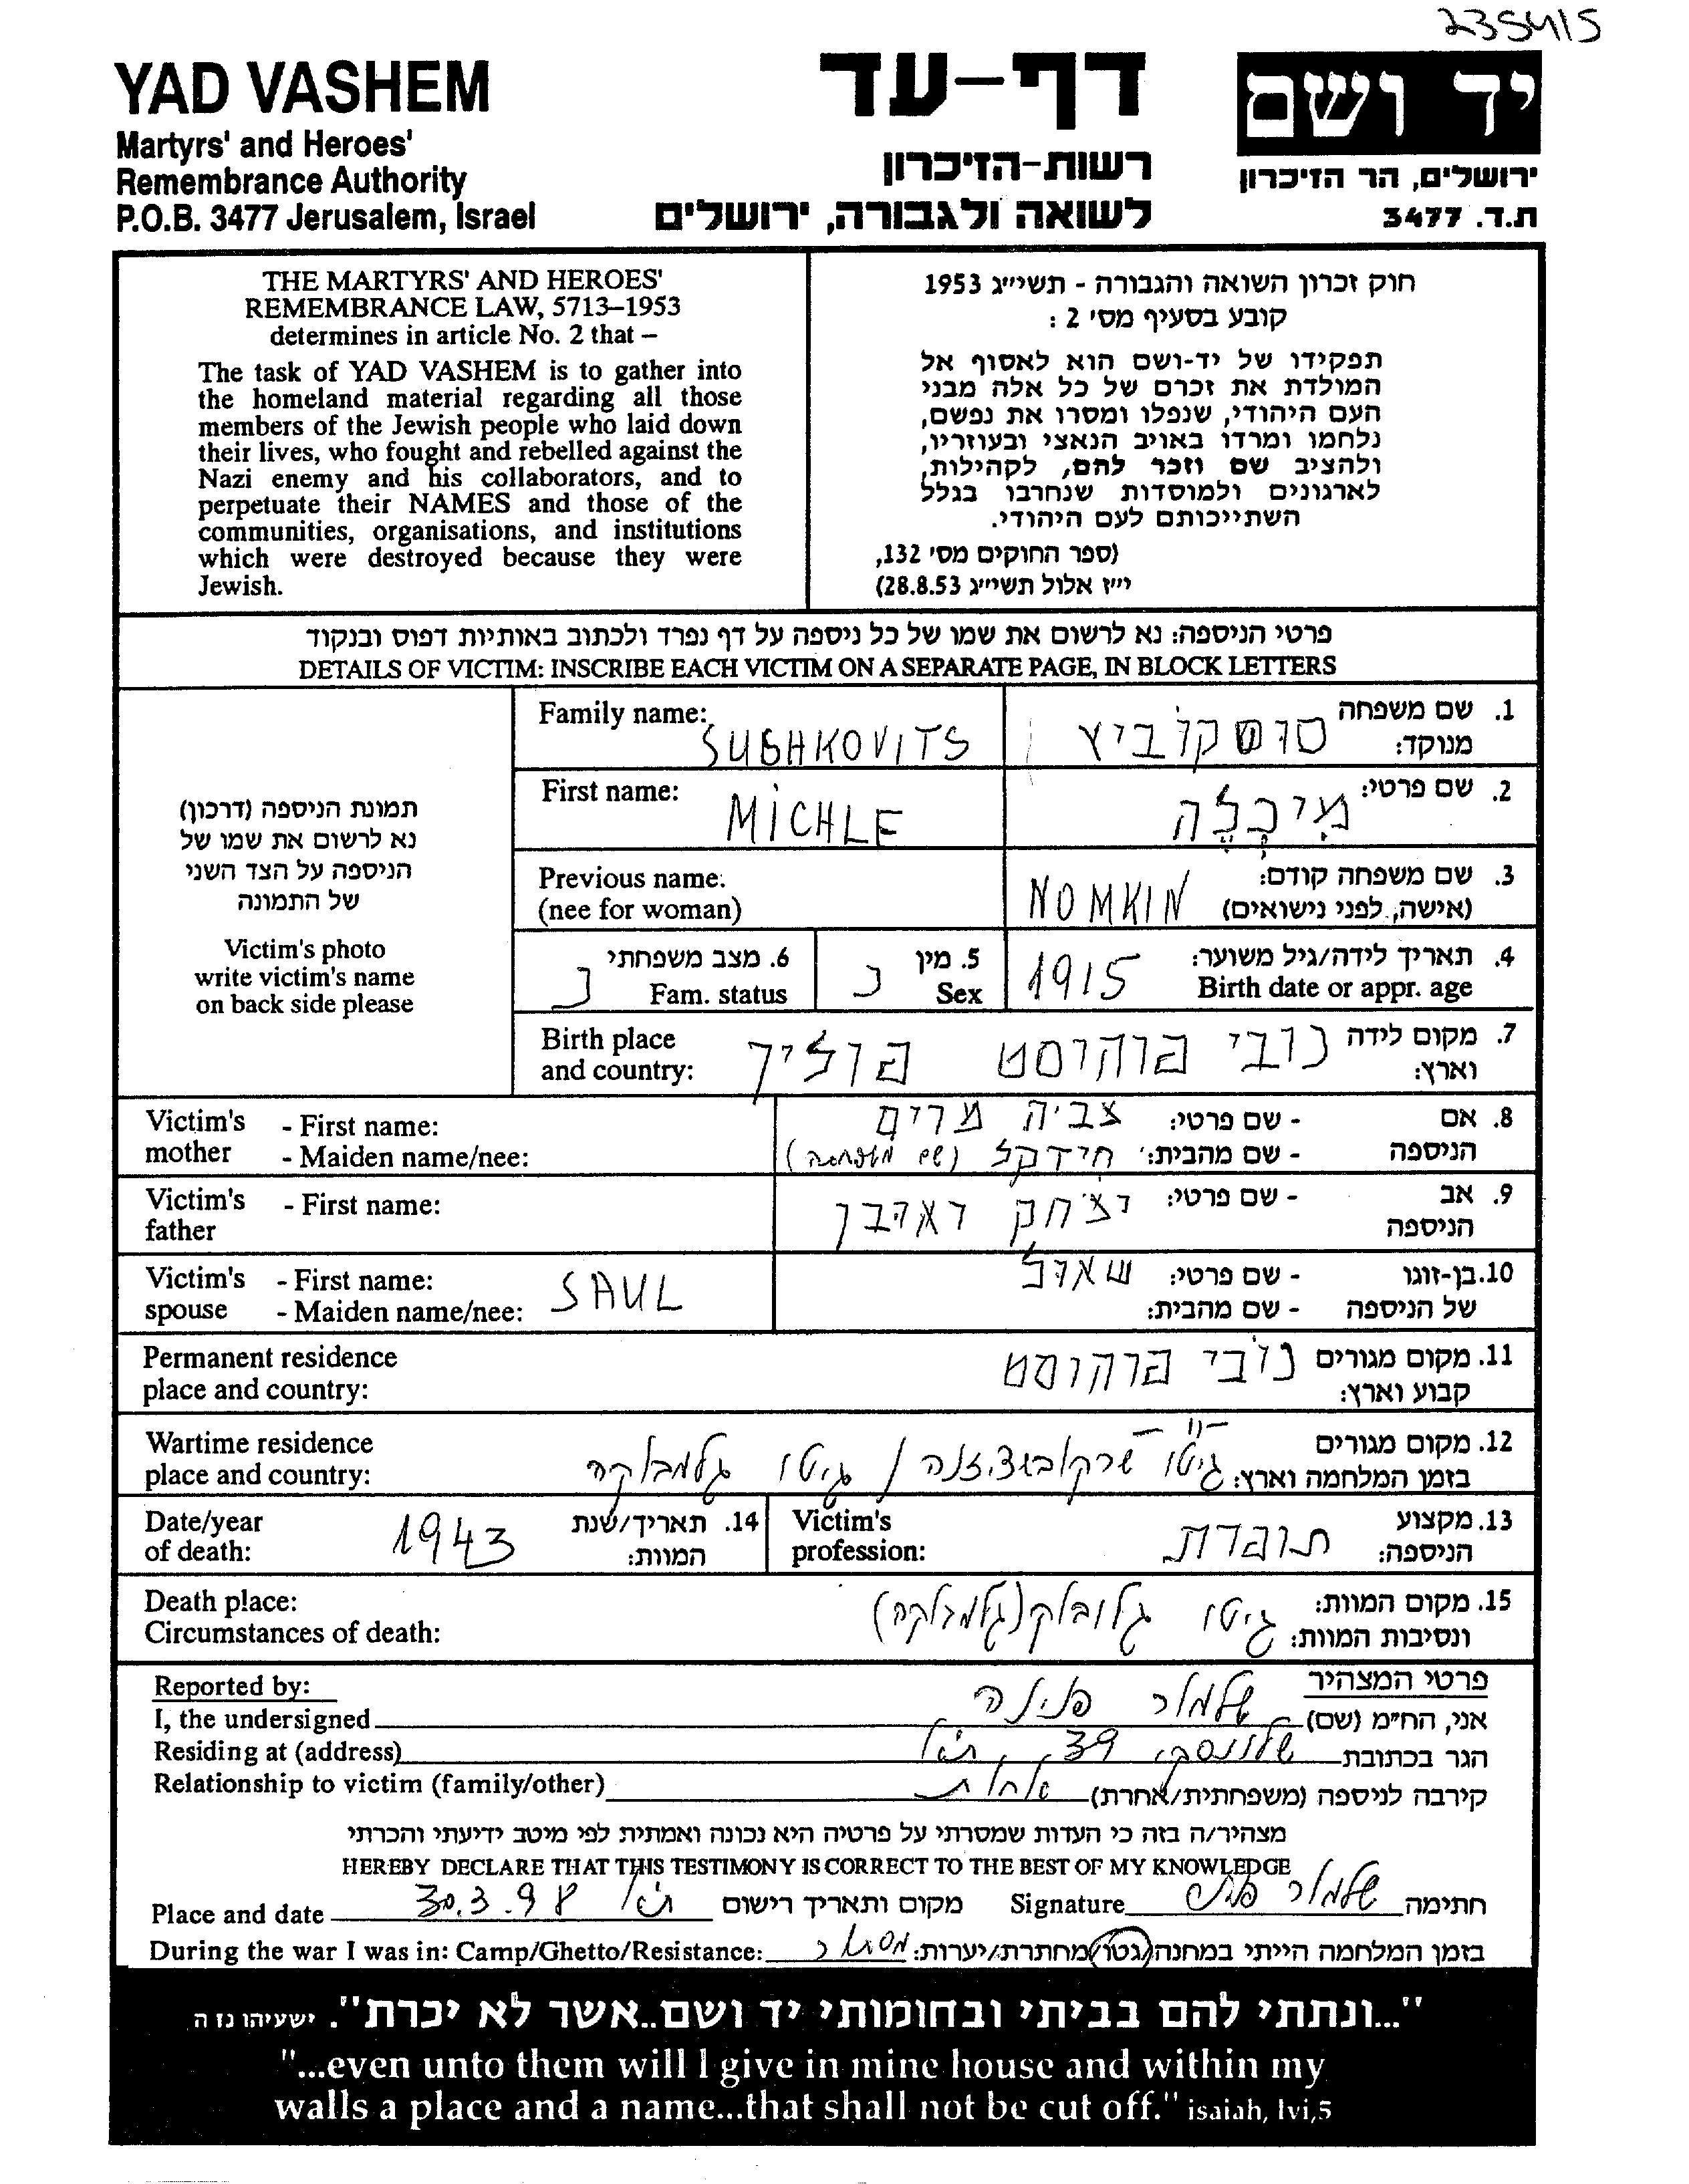 235415
YAD VASHEM
Martyrs' and Heroes'
Remembrance Authority
P.O.B. 3477 Jerusalem, Israel
דף-עד
רשות-הזיכרון
לשואה ולגבורה, ירושלים
יד ושם
ירושלים, הר הזיכרון
ת.ד. 3477
THE MARTYRS' AND HEROES'
REMEMBRANCE LAW, 5713–1953
determines in article No. 2 that –
The task of YAD VASHEM is to gather into
the homeland material regarding all those
members of the Jewish people who laid down
their lives, who fought and rebelled against the
Nazi enemy and his collaborators, and to
perpetuate their NAMES and those of the
communities, organisations, and institutions
which were destroyed because they were
Jewish.
חוק זכרון השואה והגבורה - תשי״ג 1953
קובע בסעיף מס׳ 2 :
תפקידו של יד-ושם הוא לאסוף אל
המולדת את זכרם של כל אלה מבני
העם היהודי, שנפלו ומסרו את נפשם,
נלחמו ומרדו באויב הנאצי ובעוזריו,
ולהציב שם וזכר להם, לקהילות,
לארגונים ולמוסדות שנחרבו בגלל
השתייכותם לעם היהודי.
(ספר החוקים מס׳ 132,
י״ז אלול תשי״ג 28.8.53)
פרטי הניספה: נא לרשום את שמו של כל ניספה על דף נפרד ולכתוב באותיות דפוס ובנקוד
DETAILS OF VICTIM: INSCRIBE EACH VICTIM ON A SEPARATE PAGE, IN BLOCK LETTERS
תמונת הניספה (דרכון)
נא לרשום את שמו של
הניספה על הצד השני
של התמונה
Victim's photo
write victim's name
on back side please
Family name: SUSHKOVITS
1. שם משפחה מנוקד: סושקוביץ
First name: MICHLE
2. שם פרטי: מִיכְלֶה
Previous name:
(nee for woman)
3. שם משפחה קודם:
(אישה, לפני נישואים) NOMKIN
4. תאריך לידה/גיל משוער:
Birth date or appr. age 1915
5. מין
Sex נ
6. מצב משפחתי
Fam. status נ
Birth place
and country:
7. מקום לידה
וארץ: נובי פוהוסט פולין
Victim's mother - First name:
- Maiden name/nee:
8. אם הניספה - שם פרטי: צביה מרים
- שם מהבית: חידקל (שם משפחה)
Victim's father - First name:
9. אב הניספה - שם פרטי: יצחק ראובן
Victim's spouse - First name:
- Maiden name/nee: SAUL
10. בן-זוגו של הניספה - שם פרטי: שאול
- שם מהבית:
Permanent residence
place and country:
11. מקום מגורים
קבוע וארץ: נובי פוהוסט
Wartime residence
place and country:
12. מקום מגורים
בזמן המלחמה וארץ: גיטו / גיטו
Date/year
of death:
14. תאריך/שנת
המוות: 1943
Victim's
profession:
13. מקצוע
הניספה: תופרת
Death place:
Circumstances of death:
15. מקום המוות:
ונסיבות המוות: גיטו גלובוק
Reported by:
פרטי המצהיר
I, the undersigned
אני, הח״מ (שם) פנינה
Residing at (address)
הגר בכתובת שלונסקי 39, ת״א
Relationship to victim (family/other)
קירבה לניספה (משפחתית/אחרת) אחות
מצהיר/ה בזה כי העדות שמסרתי על פרטיה היא נכונה ואמתית לפי מיטב ידיעתי והכרתי
HEREBY DECLARE THAT THIS TESTIMONY IS CORRECT TO THE BEST OF MY KNOWLEDGE
Place and date 30.3.98 ת״א מקום ותאריך רישום
Signature חתימה
During the war I was in: Camp/Ghetto/Resistance:
בזמן המלחמה הייתי במחנה/גטו/מחתרת/יערות:
"...ונתתי להם בביתי ובחומותי יד ושם..אשר לא יכרת". ישעיהו נו ה
"...even unto them will I give in mine house and within my
walls a place and a name...that shall not be cut off." isaiah, lvi,5